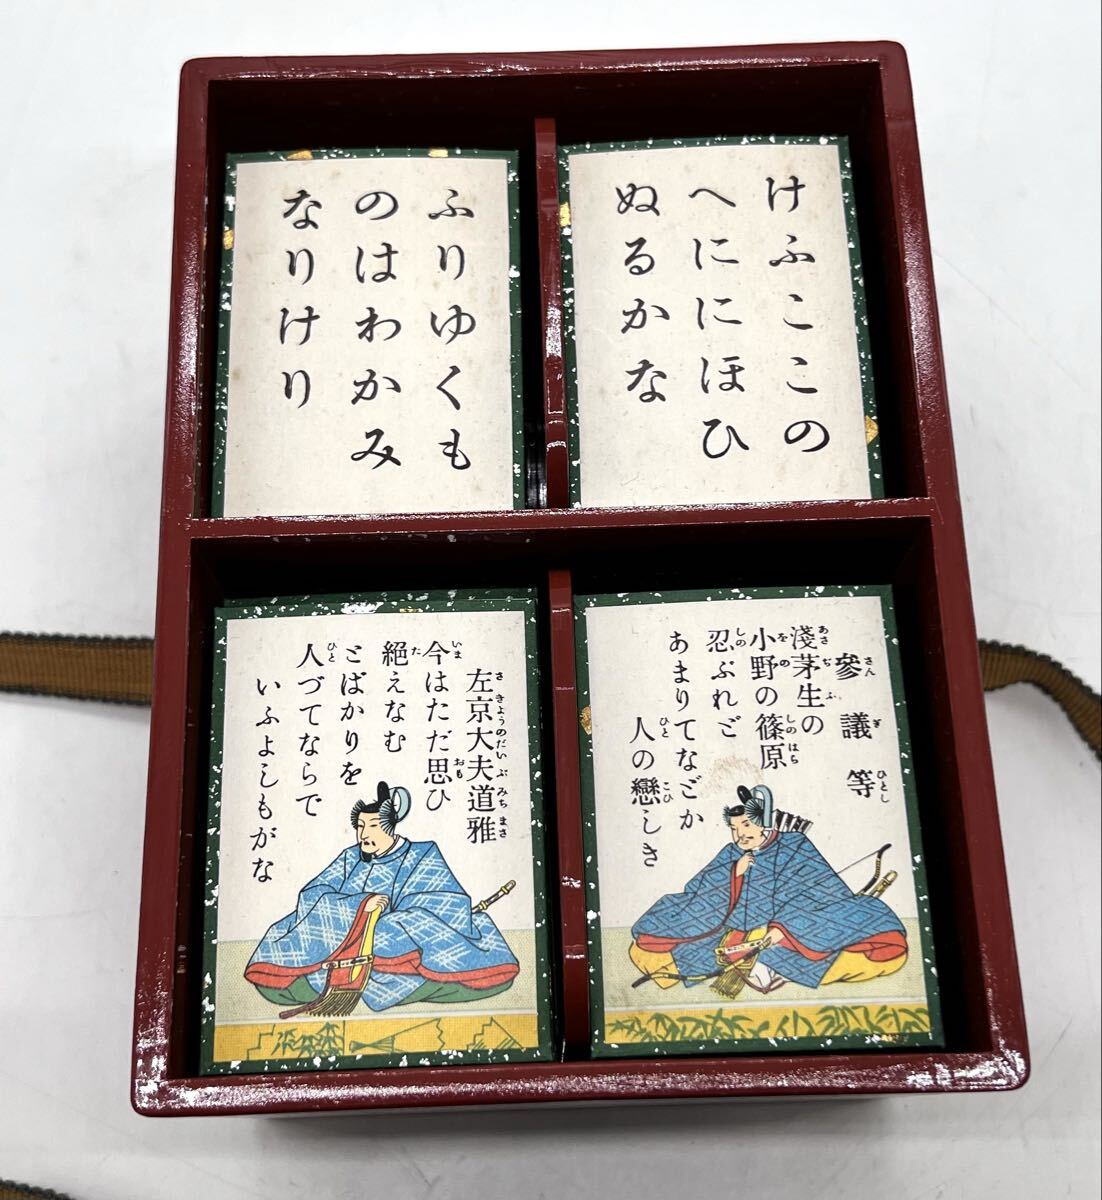 けふここの
へににほひ
ぬるかな
ふりゆくも
のはわかみ
なりけり
參議等
淺茅生の
小野の篠原
忍ぶれど
あまりてなどか
人の戀しき
左京大夫道雅
今はただ思ひ
絕えなむ
とばかりを
人づてならで
いふよしもがな